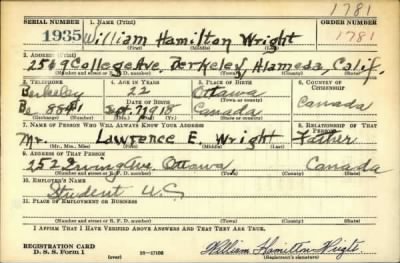 1781
SERIAL NUMBER 1. NAME (Print) ORDER NUMBER
1935 William Hamilton Wright 1781
(First) (Middle) (Last)
2. ADDRESS (Print)
2569 College Ave. Berkeley, Alameda, Calif.
(Number and street or R. F. D. number) (Town) (County) (State)
3. TELEPHONE 4. AGE IN YEARS 5. PLACE OF BIRTH 6. COUNTRY OF CITIZENSHIP
Berkeley 22 Ottawa
DATE OF BIRTH (Town or county) Canada
Canada
(Exchange) (Number) (Mo.) (Day) (Yr.) (State or country)
7. NAME OF PERSON WHO WILL ALWAYS KNOW YOUR ADDRESS 8. RELATIONSHIP OF THAT PERSON
Mr. Lawrence E. Wright Father
(Mr., Mrs., Miss) (First) (Middle) (Last)
9. ADDRESS OF THAT PERSON
252 Irving Ave. Ottawa Canada
(Number and street or R. F. D. number) (Town) (County) (State)
10. EMPLOYER'S NAME
Student U.C.
11. PLACE OF EMPLOYMENT OR BUSINESS
(Number and street or R. F. D. number) (Town) (County) (State)
I AFFIRM THAT I HAVE VERIFIED ABOVE ANSWERS AND THAT THEY ARE TRUE.
REGISTRATION CARD
D. S. S. Form 1 (over) William Hamilton Wright
(Registrant's signature)